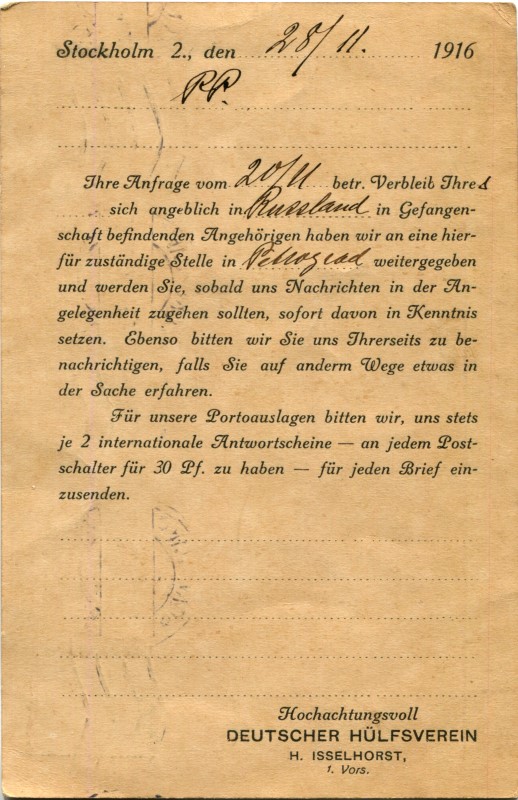 Stockholm 2., den 28/11. 1916
P.P.
Ihre Anfrage vom 20/11 betr. Verbleib Ihres
sich angeblich in Russland in Gefangen-
schaft befindenden Angehörigen haben wir an eine hier-
für zuständige Stelle in Petrograd weitergegeben
und werden Sie, sobald uns Nachrichten in der An-
gelegenheit zugehen sollten, sofort davon in Kenntnis
setzen. Ebenso bitten wir Sie uns Ihrerseits zu be-
nachrichtigen, falls Sie auf anderm Wege etwas in
der Sache erfahren.
Für unsere Portoauslagen bitten wir, uns stets
je 2 internationale Antwortscheine — an jedem Post-
schalter für 30 Pf. zu haben — für jeden Brief ein-
zusenden.
Hochachtungsvoll
DEUTSCHER HÜLFSVEREIN
H. ISSELHORST,
1. Vors.